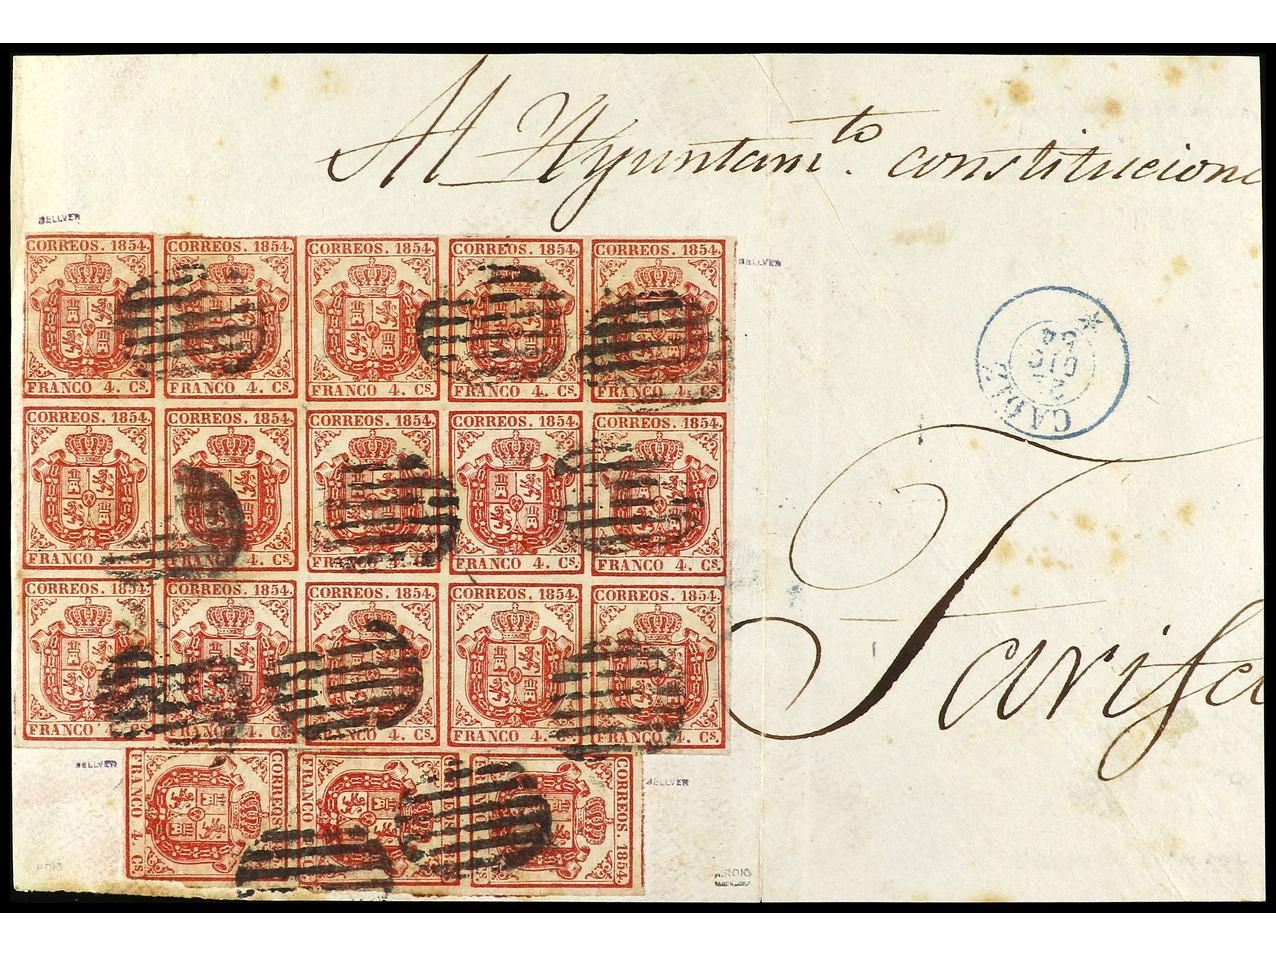 Al Ayuntam.to constitucion
BELLVER
CORREOS. 1854. CORREOS. 1854. CORREOS. 1854. CORREOS. 1854. CORREOS. 1854.
BELLVER
FRANCO 4. Cs. FRANCO 4. Cs. FRANCO 4. Cs. FRANCO 4. Cs. FRANCO 4. Cs.
CADIZ
DIC
54
CORREOS. 1854. CORREOS. 1854. CORREOS. 1854. CORREOS. 1854. CORREOS. 1854.
FRANCO 4. Cs. FRANCO 4. Cs. FRANCO 4. Cs. FRANCO 4. Cs. FRANCO 4. Cs.
Tarifa
CORREOS. 1854. CORREOS. 1854. CORREOS. 1854. CORREOS. 1854. CORREOS. 1854.
FRANCO 4. Cs. FRANCO 4. Cs. FRANCO 4. Cs. FRANCO 4. Cs. FRANCO 4. Cs.
BELLVER
BELLVER
FRANCO 4 Cs.
CORREOS.
FRANCO
CORREOS.
FRANCO
CORREOS. 1854.
ROIG
A.ROIG